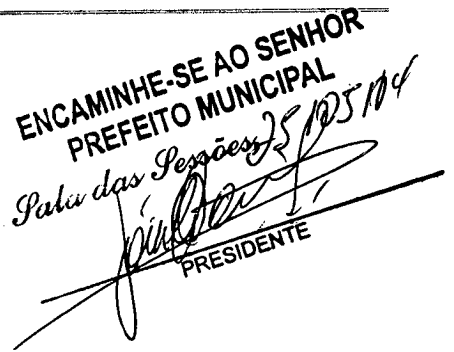 ENCAMINHE-SE AO SENHOR
PREFEITO MUNICIPAL
Sala das Sessões, 25/05/04
PRESIDENTE